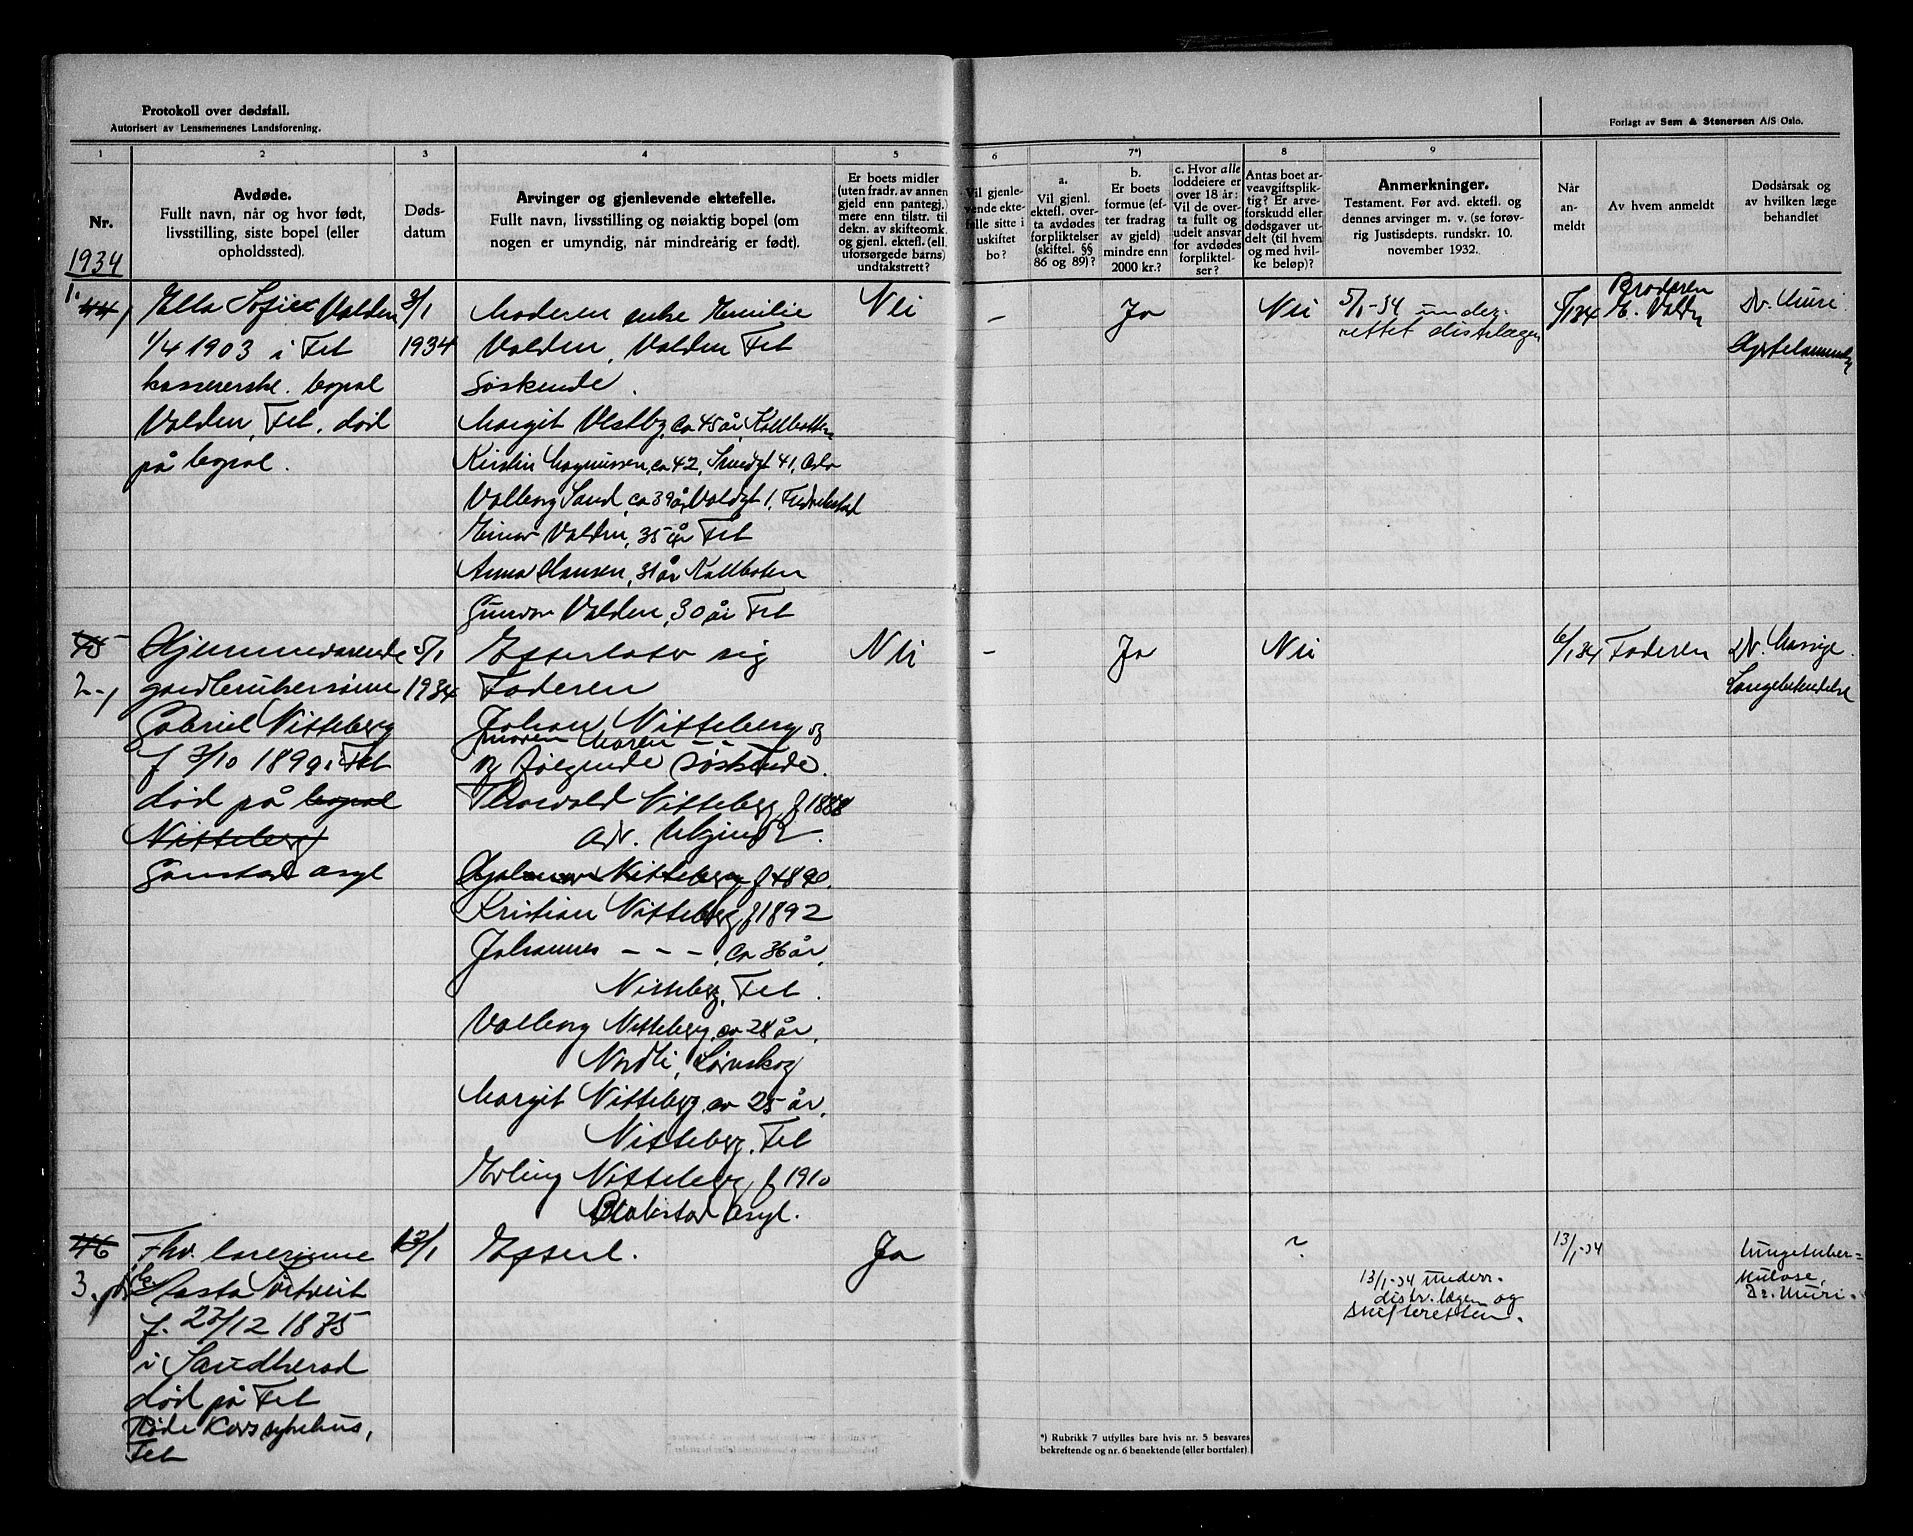 Protokoll over dødsfall.
Autorisert av Lensmennenes Landsforening.
Forlagt av Sem & Stenersen A/S Oslo.
1 2 3 4 5 6 7*) 8 9
Nr.
1934
Avdøde.
Fullt navn, når og hvor født,
livsstilling, siste bopel (eller
opholdssted).
Døds-
datum
Arvinger og gjenlevende ektefelle.
Fullt navn, livsstilling og nøiaktig bopel (om
nogen er umyndig, når mindreårig er født).
Er boets midler
(uten fradr. av annen
gjeld enn pantegj.)
mere enn tilstr. til
dekn. av skifteomk.
og gjenl. ektefl. (ell.
uforsørgede barns)
undtakstrett?
Vil gjenle-
vende ekte-
felle sitte i
uskiftet
bo?
a.
Vil gjenl.
ektefl. over-
ta avdødes
forpliktelser
(skiftel. §§
86 og 89)?
b.
Er boets
formue (ef-
ter fradrag
av gjeld)
mindre enn
2000 kr.?
c. Hvor alle
loddeiere er
over 18 år:
Vil de over-
ta fullt og
udelt ansvar
for avdødes
forpliktel-
ser?
Antas boet ar-
veavgiftsplik-
tig? Er arve-
forskudd eller
dødsgaver ut-
delt (til hvem
og med hvil-
ke beløp)?
Anmerkninger.
Testament. Før avd. ektefl. og
dennes arvinger m. v. (se forøv-
rig Justisdepts. rundskr. 10.
november 1932.
Når
an-
meldt
Av hvem anmeldt
Dødsårsak og
av hvilken læge
behandlet
1.
44
Ella Sofie Valden
1/4 1903 i Fet
kassererske. bopel
Valden, Fet. død
på bopel.
3/1
1934
Moderen enke Emilie
Valden, Valden Fet
Søskende.
Margit Vestby, ca 45 år, Kolbotten
Kirstin Magnussen, ca 42, 41, Oslo
Valborg Sand, ca 39 år, Valdgt 1, Fredrikstad
Einar Valden, 35 år Fet
Anna Hansen, 31 år Kolboten
Gunvor Valden, 30 år Fet
Nei
-
Ja
Nei
5/1-34 under-
rettet distr.lægen
5/1 34
Broderen
E. Valden
Dr. Muri
45
2
Hjemmeværende
gardbrukersønn
Gabriel Nitteberg
f 3/10 1899 i Fet
død på bopel
Nitteberg
Gonstad asyl
5/1
1934
Efterlater sig
Faderen
Johan Nitteberg og
moren Maren
og følgende søskende.
Thorvald Nitteberg, f 1888
Hjalmar Nitteberg f 1890.
Kristian Nitteberg f 1892
Johannes - - -, ca 36 år,
Nitteberg, Fet.
Valborg Nitteberg, ca 28 år,
Nordli, Lørenskog
Margit Nitteberg, ca 25 år,
Nitteberg, Fet
Erling Nitteberg, f 1910
asyl.
Nei
-
Ja
Nei
6/1 34
Faderen
Dr.
Lungebetendelse
46
3.
Fhv. lærerinne
Aasta Tortveit
f. 27/12 1875
i Sandherad
død på Fet
Røde Kors sykehus,
Fet
13/1
Efterl.
Ja
?
13/1-34 underr.
distr. lægen og
skifteretten.
13/1-34
Lungetuber=
kulose,
Dr. Muri.
*) Rubrikk 7 utfylles bare hvis nr. 5 besvares
bekreftende og nr. 6 benektende (eller bortfaler)